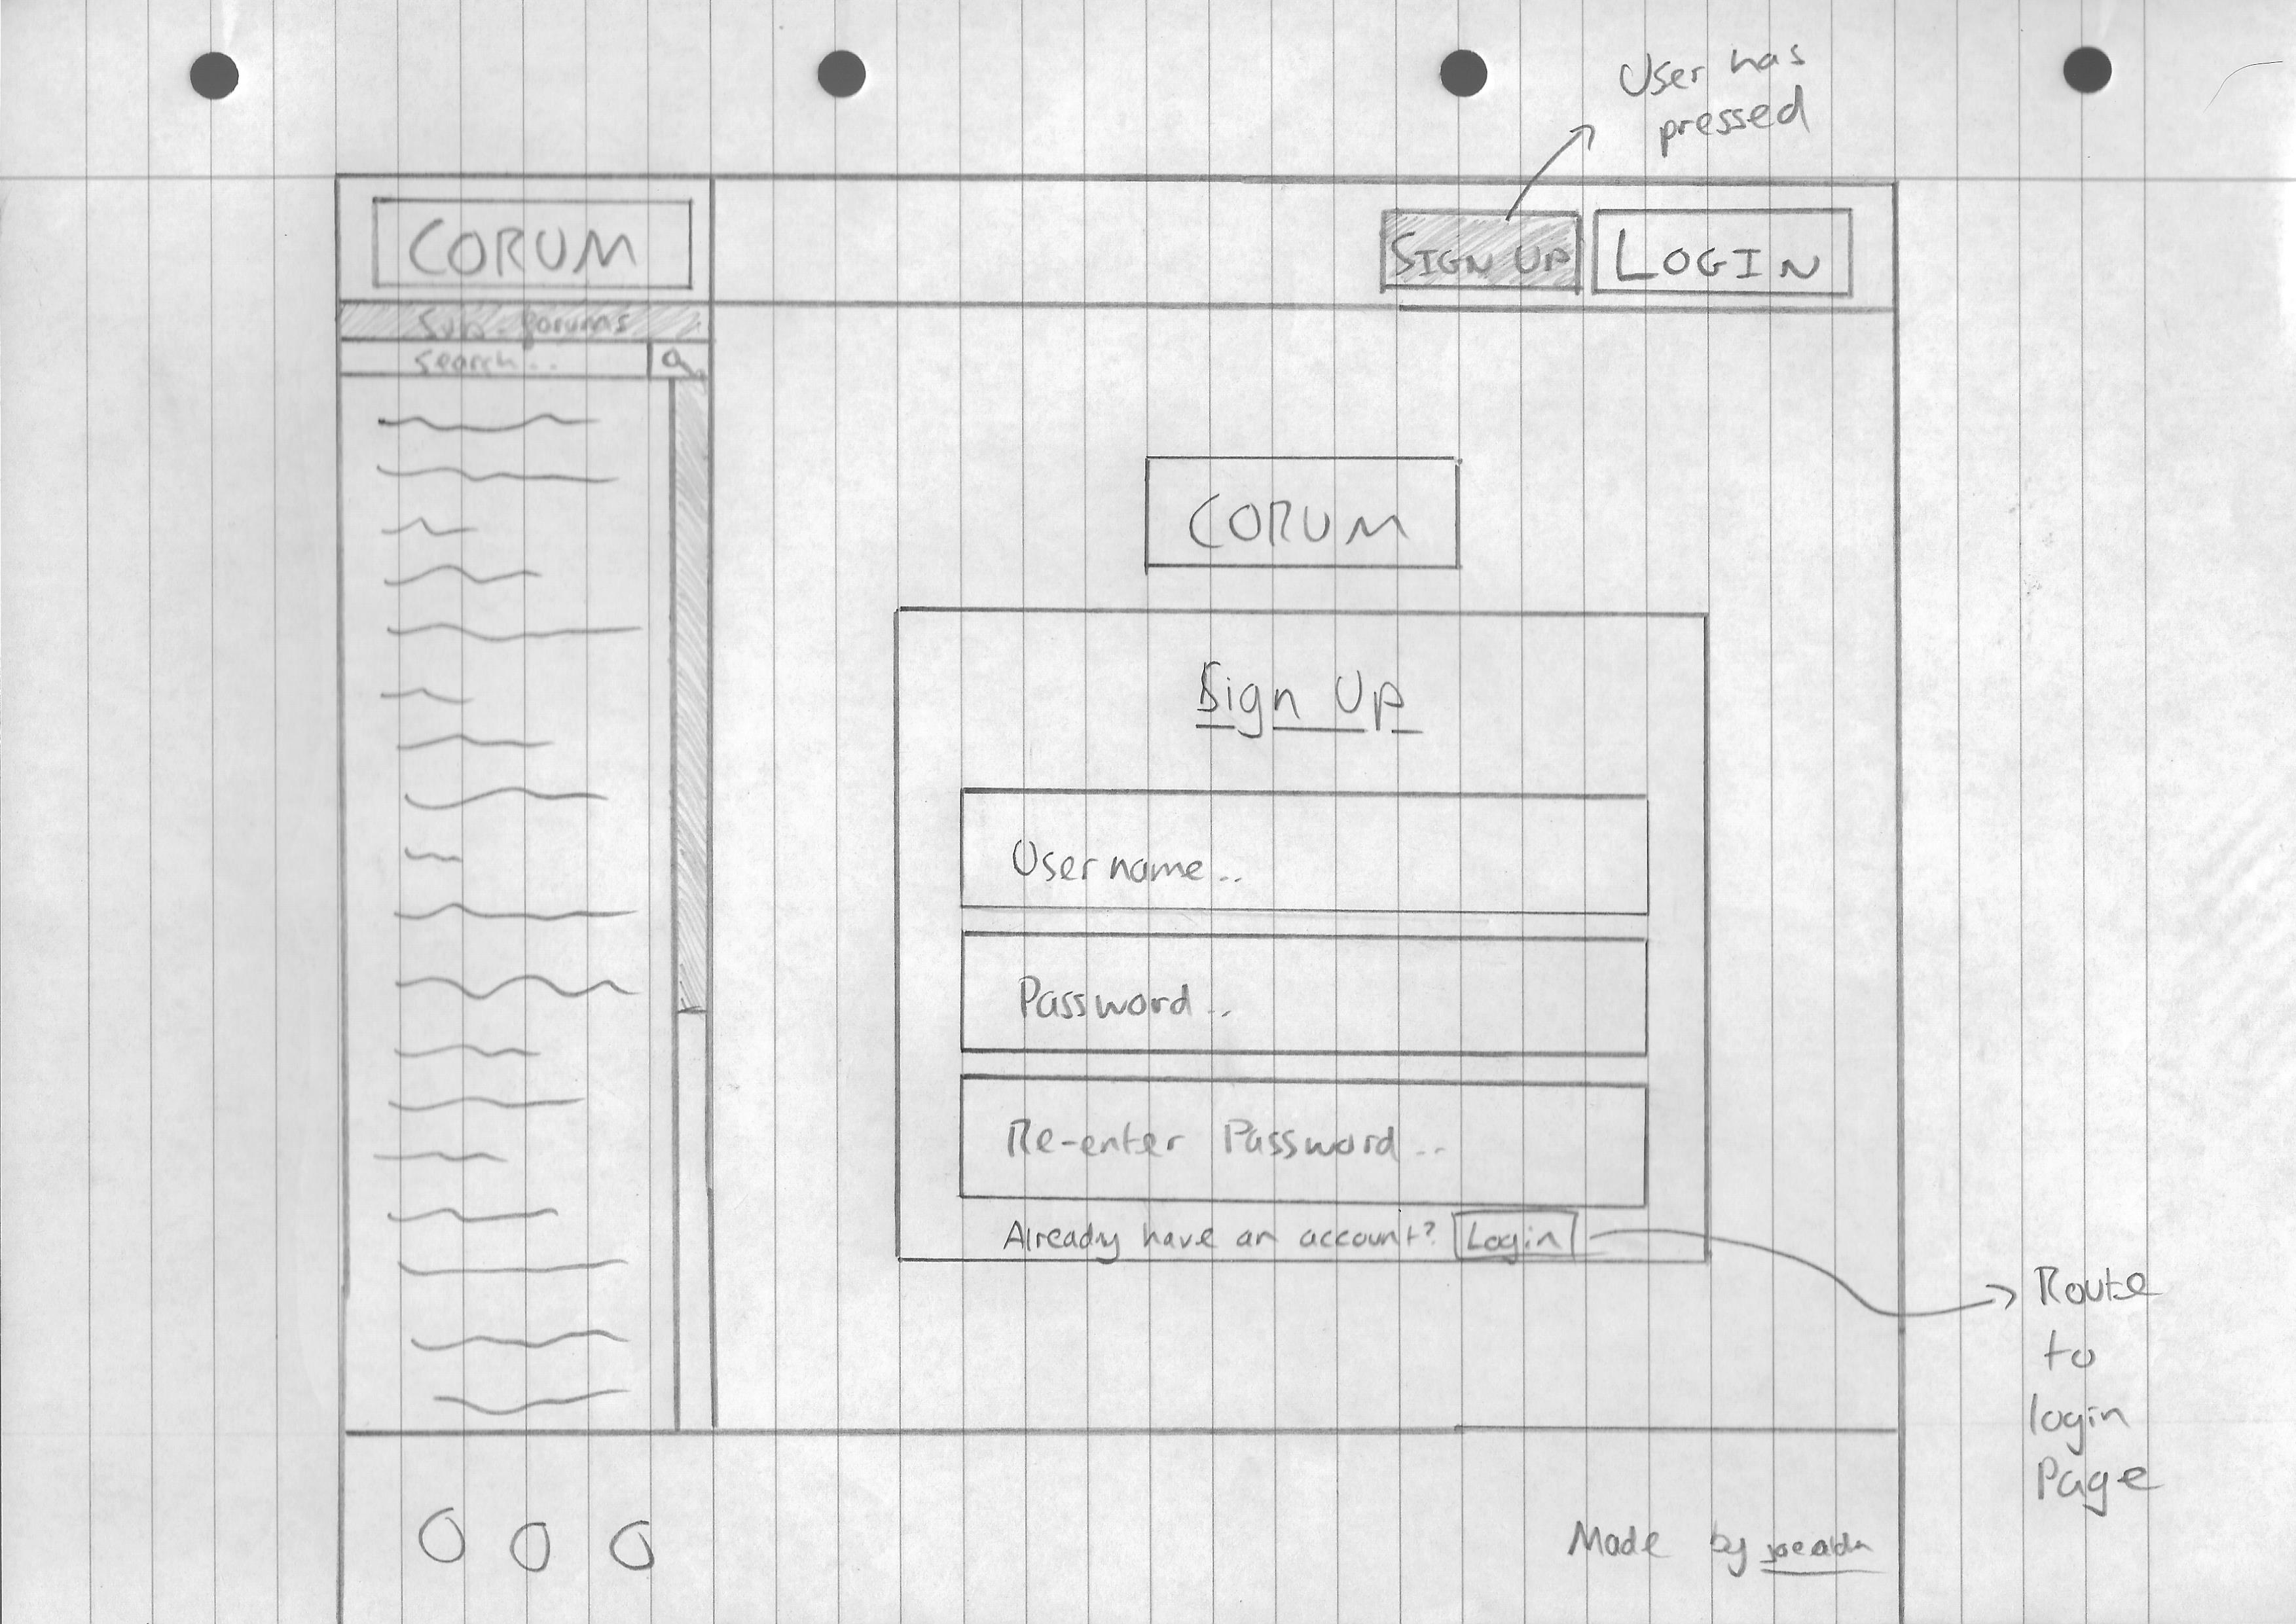 User has
pressed
CORUM
SIGN UP
LOGIN
Sub-forums
Search..
CORUM
Sign Up
Username..
Password..
Re-enter Password..
Already have an account? Login
Route
to
login
Page
Made by